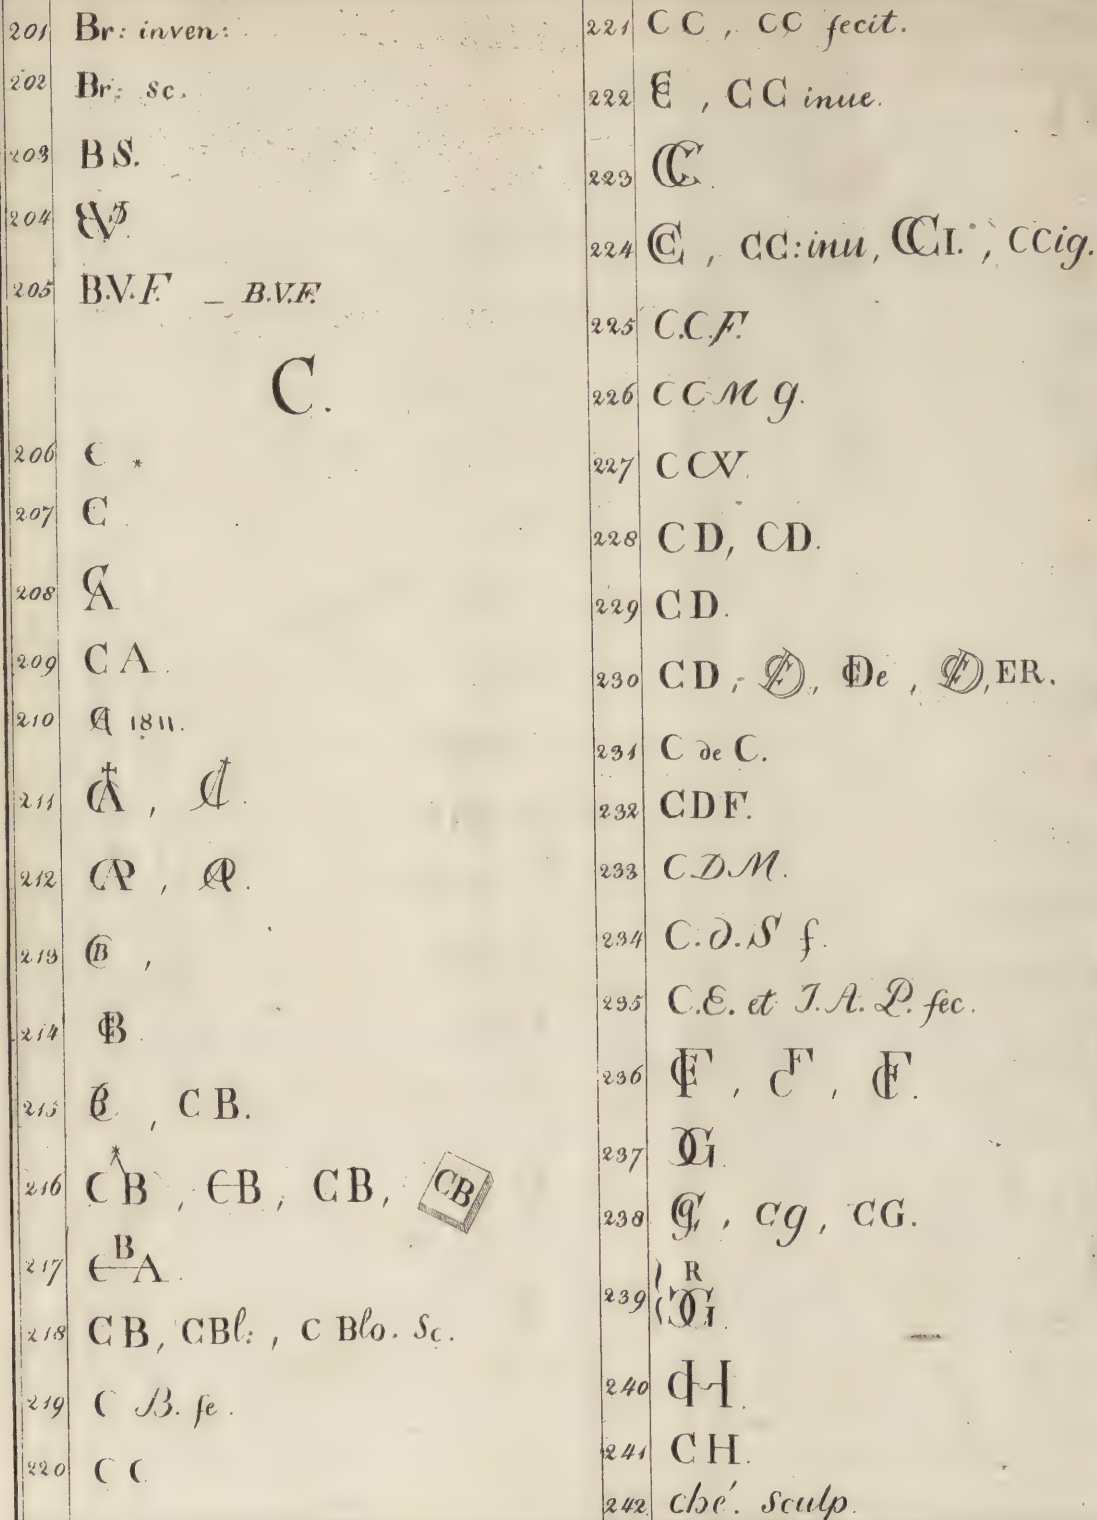 201 Br: inven:
202 Br: sc.
203 B S.
204
205 B.V.F. _ B.V.F.
C.
206 C *
207 C
208 CA
209 C A.
210 CA 1811.
211 CA, CA.
212 CAP, CAP.
213 CB,
214 CB.
215 CB, C B.
216 C B, CB, CB, CB
217 C B A.
218 C B, CBl:, C Blo. Sc.
219 C B. fe.
220 C C
221 C C, CC fecit.
222 CC, C C inue.
223 CC.
224 CC, CC:inu, CCI., CCig.
225 C.C.F.
226 C C M g.
227 C C V.
228 C D, CD.
229 C D.
230 C D, De, ER.
231 C de C.
232 CDF.
233 C.D.M.
234 C.d.S f.
235 C.E. et J.A.P. fec.
236 CF, CF, CF.
237 CG.
238 CG, Cg, CG.
239 R CG.
240 CH.
241 C H.
242 Ché. Sculp.